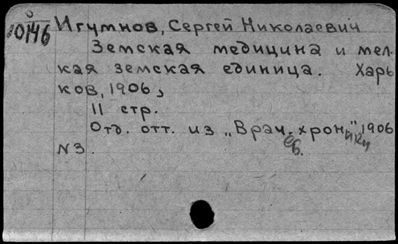 0146
Игумнов, Сергей Николаевич
Земская медицина и мел-
кая земская единица. Харь
ков, 1906,
11 стр.
Отд. отт. из „Врач. хроники" 1906
N3.